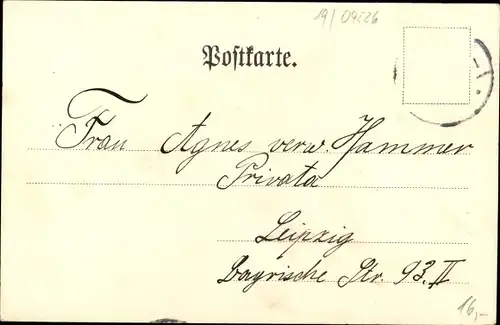 19/09526
Postkarte.
Frau Agnes verw. Hammer
Privata
Leipzig
Bayrische Str. 93. II
16,-